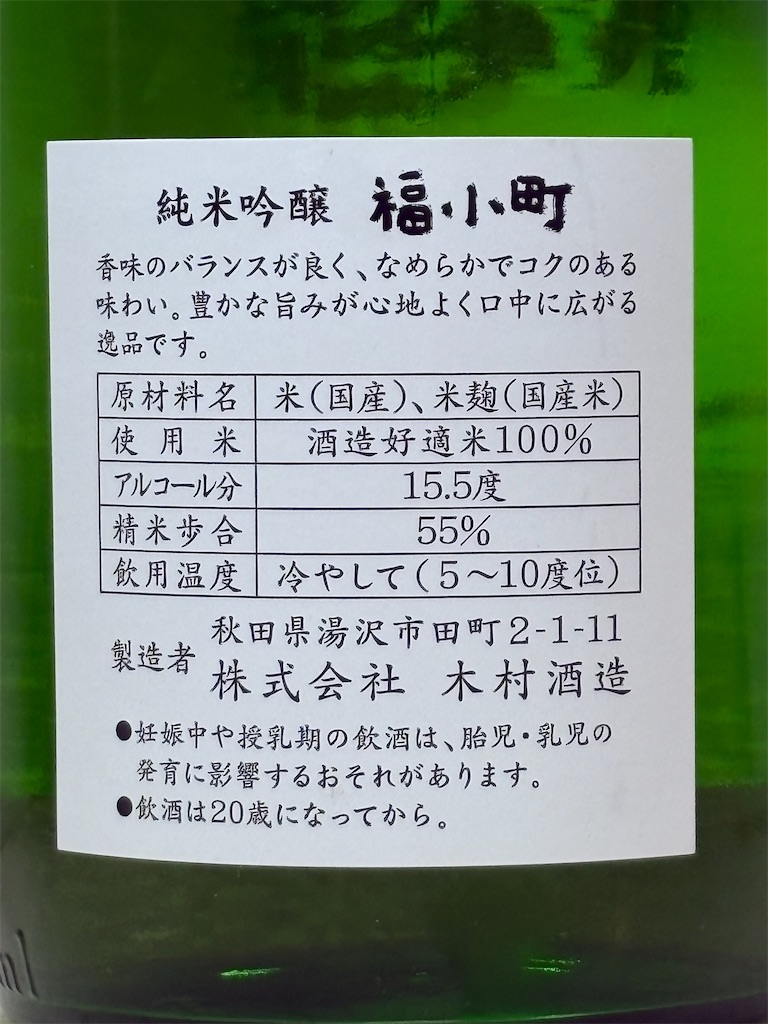 純米吟醸 福小町
香味のバランスが良く、なめらかでコクのある
味わい。豊かな旨みが心地よく口中に広がる
逸品です。
原材料名 米(国産)、米麹(国産米)
使用米 酒造好適米100%
アルコール分 15.5度
精米歩合 55%
飲用温度 冷やして(5～10度位)
製造者 秋田県湯沢市田町2-1-11
株式会社 木村酒造
●妊娠中や授乳期の飲酒は、胎児・乳児の
発育に影響するおそれがあります。
●飲酒は20歳になってから。
ml